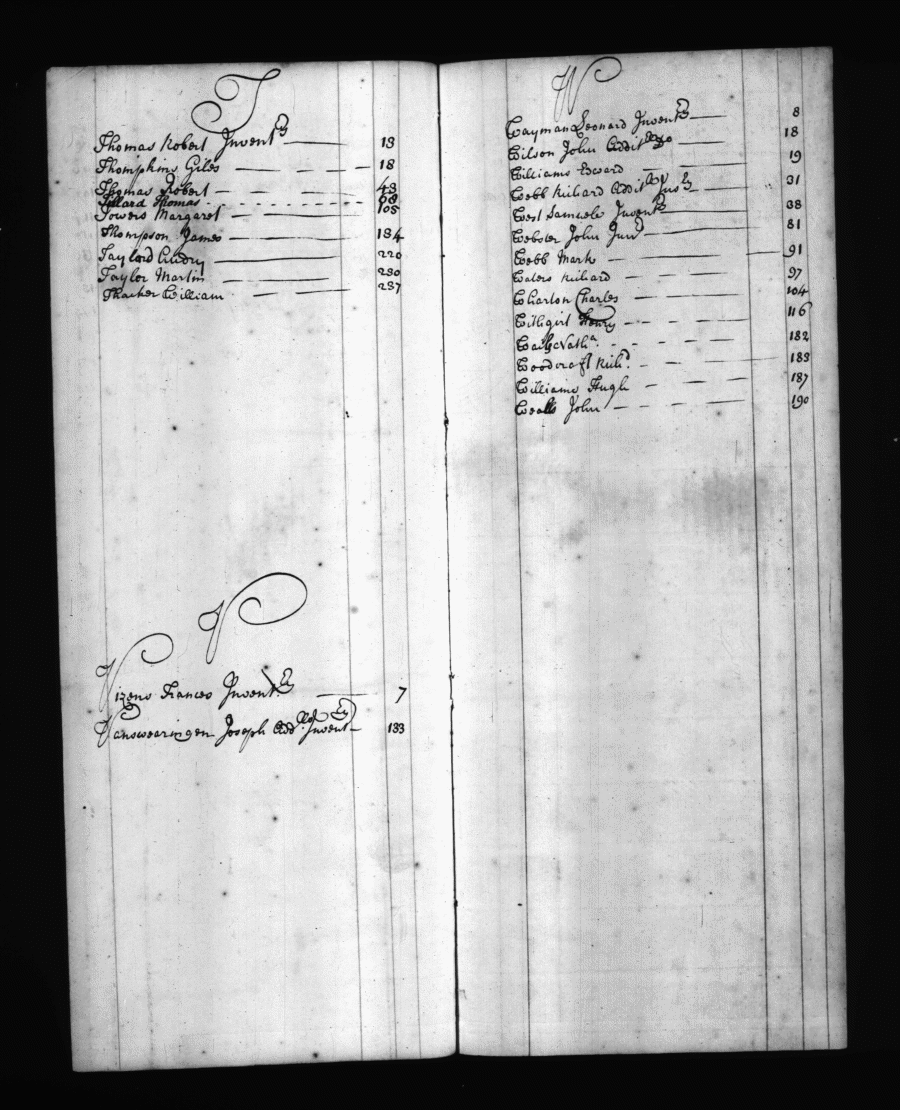 T
Thomas Robert Inventry 13
Thompkins Giles 18
Thomas Robert 43
Tillard Thomas 68
Towers Margaret 105
Thompson James 184
Taylord Audry 220
Taylor Martin 230
Thacker William 237
V
Vizeno Frances Inventry 7
Vanswearingen Joseph Add.ll Inventry 133
W
Wayman Leonard Inventry 8
Wilson John Addit 18
Williams Edward 19
Webb Richard Addit 31
West Samuele Inventry 38
Webster John Junr 81
Webb Mark 91
Waters Richard 97
Wharton Charles 104
Withgirt Henry 116
182
Woodcraft Richd. 183
Williams Hugh 187
Wealls John 190